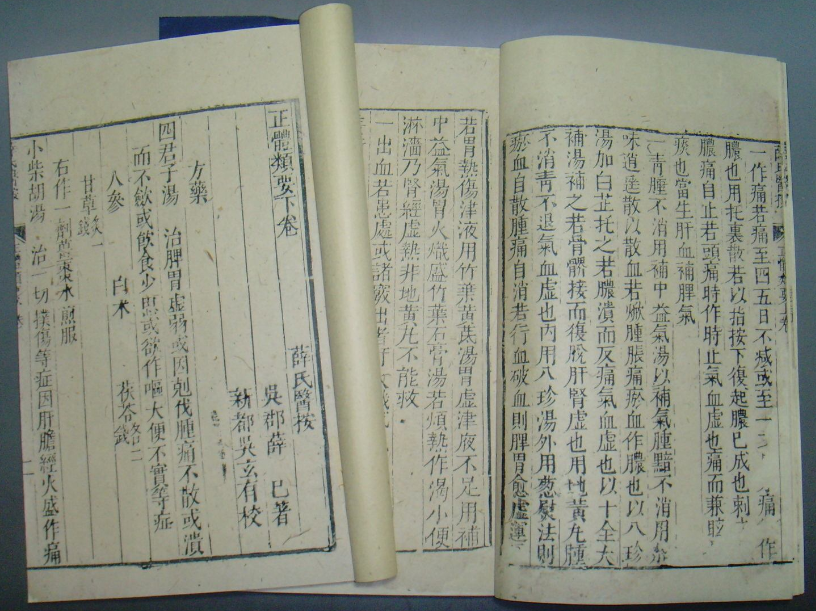 一作痛若痛至四五日不減或至一二 痛 作
膿也用托裏散若以指按下復起膿已成也刺
膿痛自止若頭痛時作時止氣血虛也痛而兼腔
痰也當生肝血補脾氣
一青腫不消用補中益氣湯以補氣腫黯不消用
味逍遙散以散血若焮腫脹痛瘀血作膿也以八珍
湯加白芷托之若膿潰而反痛氣血虛也以十全大
補湯補之若骨髎接而復脫肝腎虛也用地黃丸腫
不消青不退氣血虛也內用八珍湯外用葱熨法則
瘀血自散腫痛自消若行血破血則脾胃愈虛運
若胃熱傷津液用竹葉黃芪湯胃虛津液不足用補
中益氣湯胃火熾盛竹葉石膏湯若煩熱作渴小便
淋濇乃腎經虛熱非地黃丸不能救
一出血若患處或諸竅出者肝火
正體類要下卷
薛氏醫按
吳郡薛 己著
新都吳玄有校
方藥
四君子湯 治脾胃虛弱或因剋伐腫痛不散或潰
而不歛或飲食少思或欲作嘔大便不實等症
人參 白朮 茯苓各二錢
甘草一錢
右作一劑薑棗水煎服
小柴胡湯 治一切撲傷等症因肝膽經火盛作痛